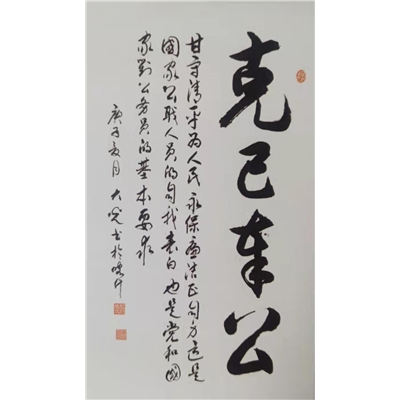 克己奉公
甘守清平为人民永保廉洁正自方这是
国家公职人员的自我表白也是党和国
家对公务员的基本要求
庚子夏月大书于喀什